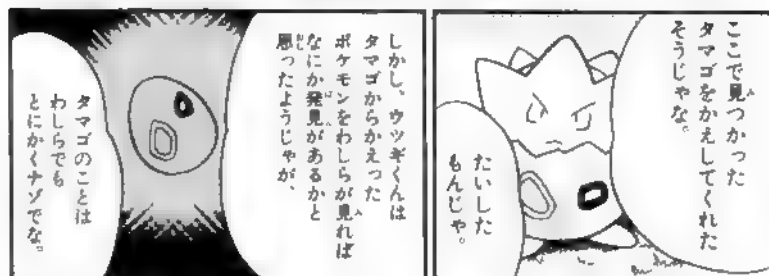 ここで見つかった
タマゴをかえしてくれた
そうじゃな。
たいした
もんじゃ。
しかし、ウツギくんは
タマゴからかえった
ポケモンをわしらが見れば
なにか発見があるかと
思ったようじゃが、
タマゴのことは
わしらでも
とにかくナゾでな。